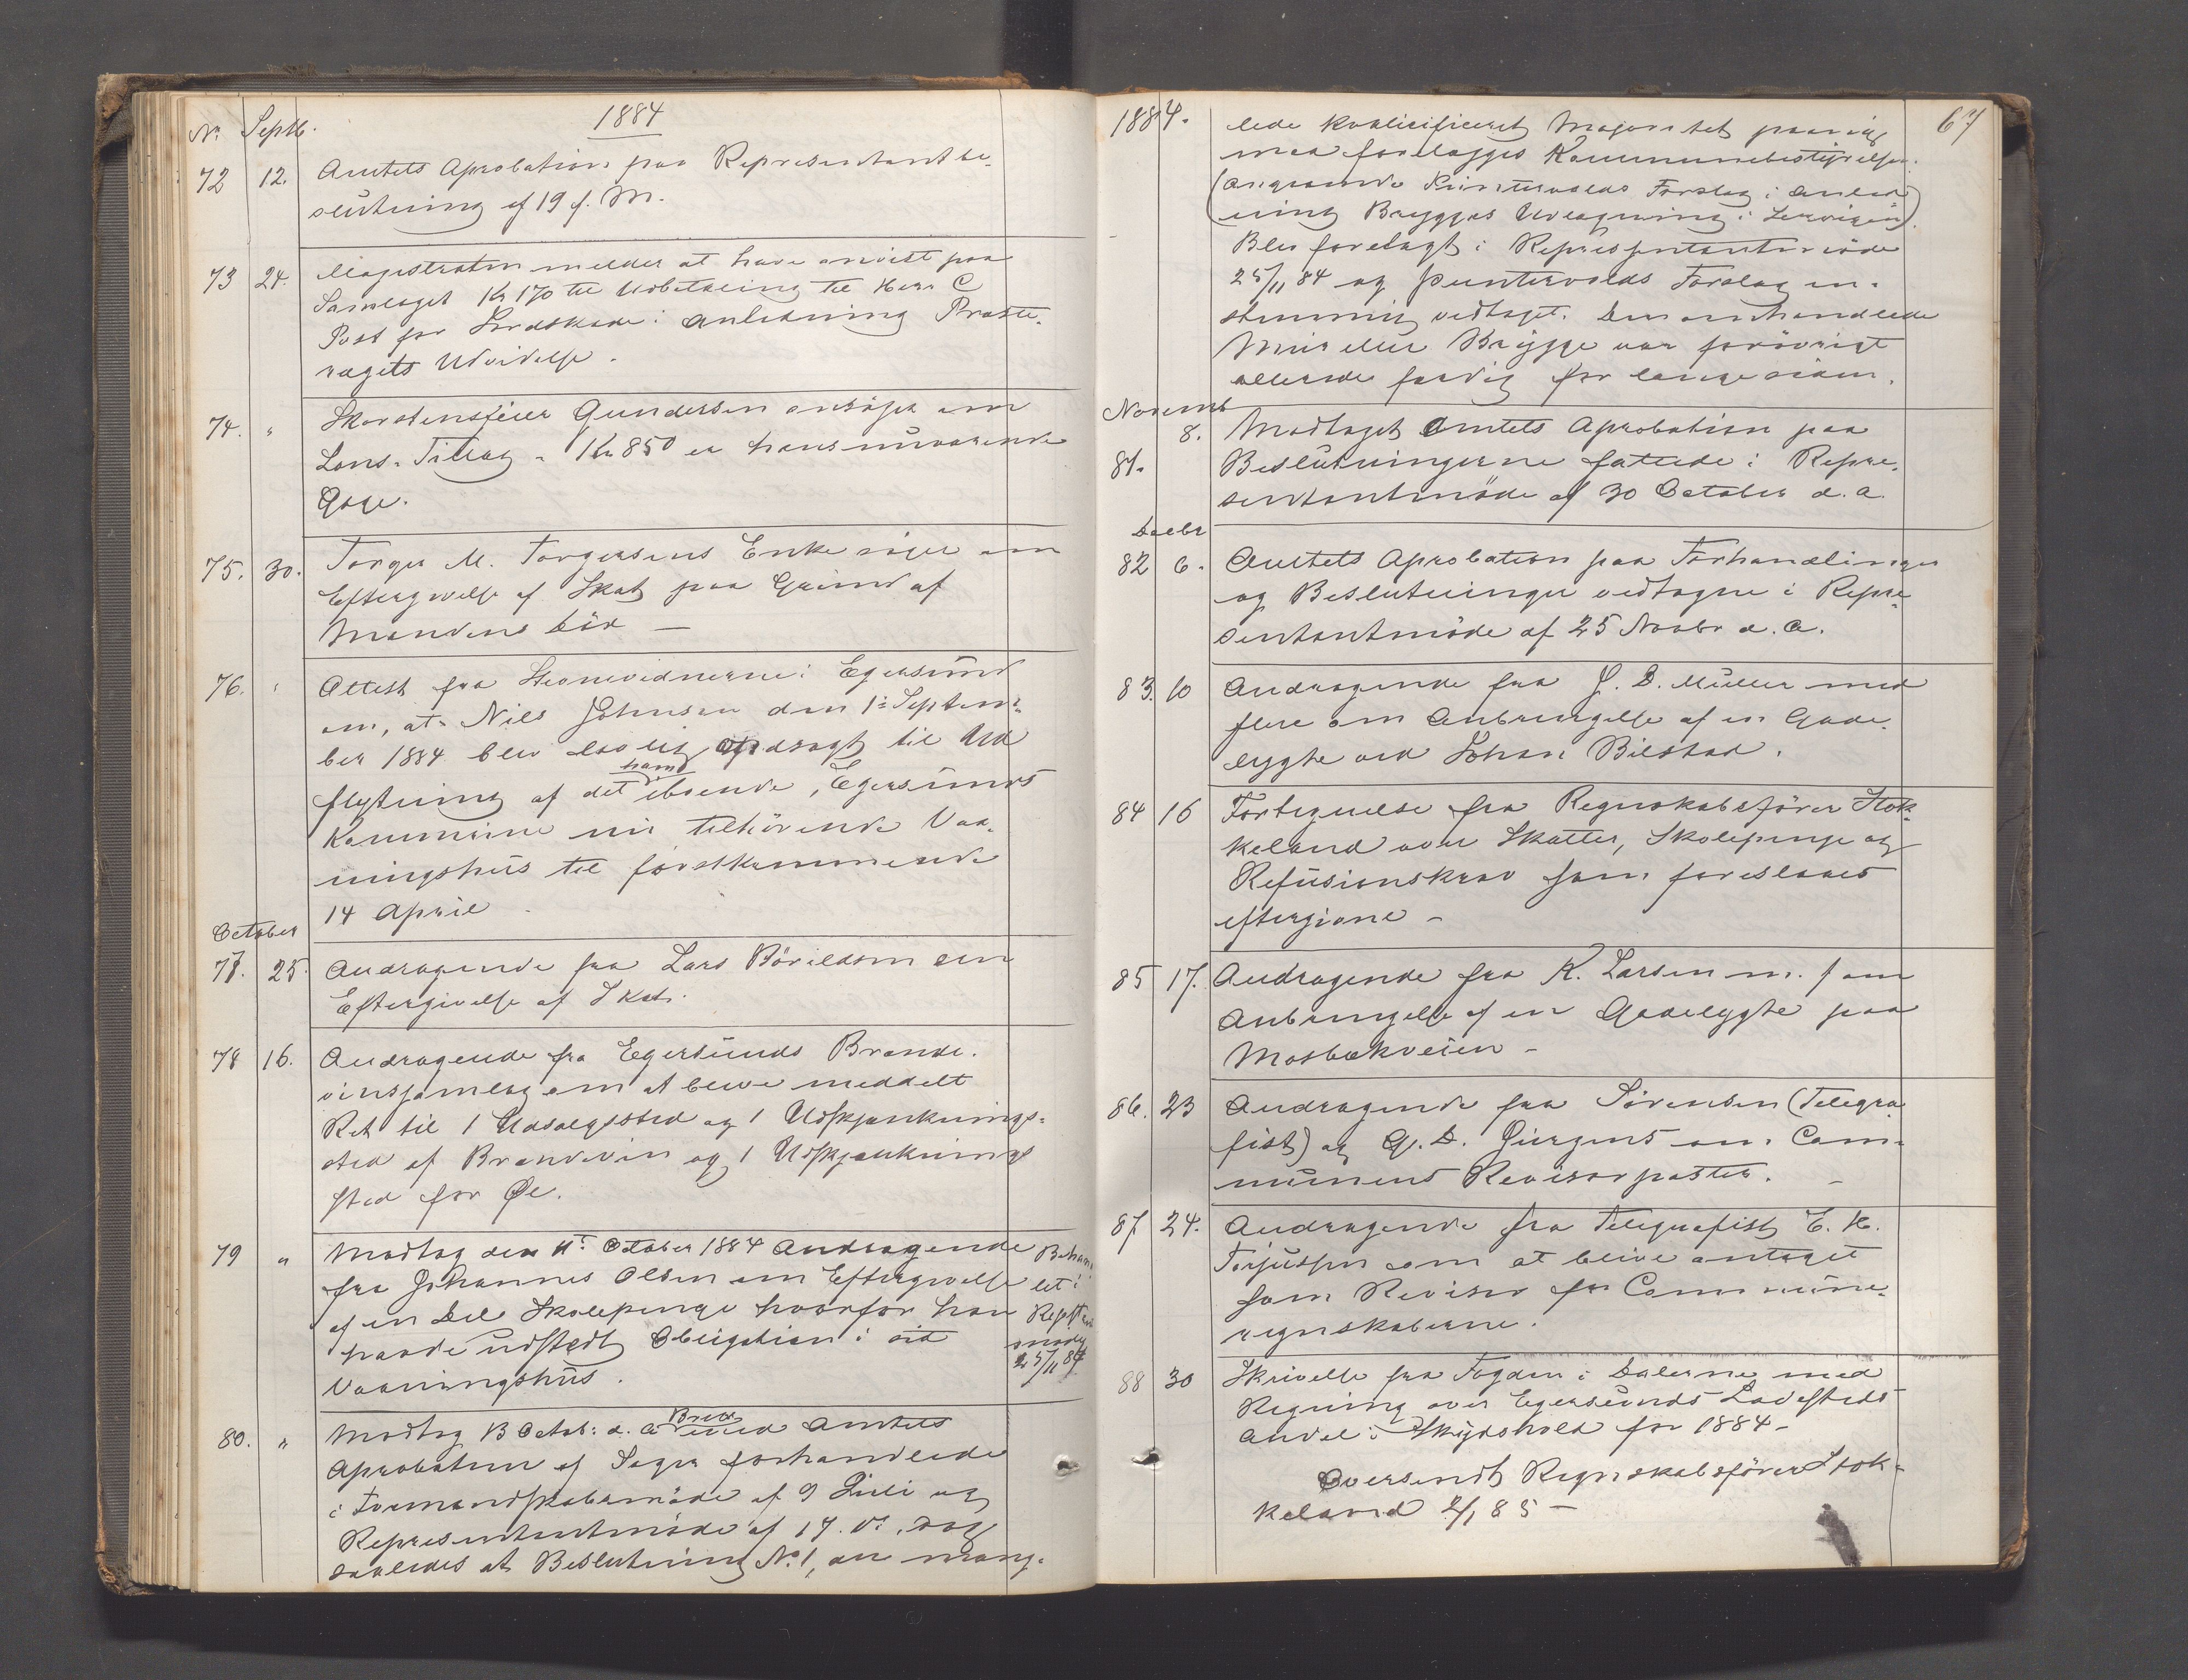 Nr. Septb. 1884
72 12. Amtets Aprobation paa Representantbe-
slutning af 19 f. M.
73 24. Magistraten melder at have anvist paa
Samlaget Kr 170 til Udbetaling til Herr C
Post for Jordskade i Anledning Præste-
Udvidelse.
74. " Skorstensfeier Gundersen ansøger om
Løns-Tillæg - Kr 850 er hans nuværende
Gage.
75. 30. Torger M. Torgersens Enke søger om
Eftergivelse af Skat paa Grund af
Mandens død —
76. " Attest fra Stevnevidnerne i Egersund
om, at Nils Johnsen den 1ste Septem-
ber 1884 blev lovlig opsagt til Ud
flytning af det af ham iboende, Egersunds
Kommune nu tilhørende Vaa-
ningshus til førstkommende
14 April
October
77. 25. Andragende fra Lars Bøvildsen om
Eftergivelse af Skat.
78 16. Andragende fra Egersunds Brænde-
vinssamlag om at blive meddelt
Ret til 1 Udsalgssted og 1 Udskjænknings-
sted af Brændevin og 1 Udskjænknings
sted for Øl.
79 " Modtog den 11te October 1884 Andragende
fra Johannes Olsen om Eftergivelse
af en Del Skolepenge hvorfor han
havde udstedt Obligation i sit
Vaaningshus.
Behand-
let i
Repst
møde
25/11 84
80. " Modtog 13 Octob: d. A. Brev med Amtets
Aprobation af Sager forhandlede
i Formandskabsmøde af 9 Juli og
Representantmøde af 17. ds. dog
saaledes at Beslutning No 1, om mang-
1884. 67
lede kvalificeret Majoritet paany
maa forelægges Kommunebestyrelsen.
(angaaende Puntervolds Forslag i Anled-
ning Brygges Udlægning i Lervigen).
Blev forelagt i Represententmøde
25/11 84 og Puntervolds Forslag en-
stemmig vedtaget. Den omhandlede
Mur eller Brygge var forøvrigt
allerede færdig for længe siden.
Novemb
81. 8. Modtaget Amtets Aprobation paa
Beslutningerne fattede i Repre-
sentantmøde af 30 October d. a.
Decbr
82 6. Amtets Aprobation paa Forhandlinger
og Beslutninger vedtagne i Repre-
sentantmøde af 25 Novbr d. A.
83. 10 Andragende fra J. D. Müller med
flere om Anbringelse af en Gade-
lygte ved Johan Bilstad.
84 16 Fortegnelse fra Regnskabsfører Stok-
keland over Skatter, Skolepenge og
Refusionskrav som foreslaaes
eftergivne —
85 17. Andragende fra K. Larsen m. f om
Anbringelse af en Gadelygte paa
Mosbækveien —
86. 23 Andragende fra Sørensen (Telegra-
fist) og G. D. Jürgens om Com-
munens Revisorposter. —
87 24. Andragende fra Telegrafist E. H.
Torjussen om at blive antaget
som Revisor for Commune-
regnskaberne.
88 30 Skrivelse fra Fogden i Dalerne med
Regning over Egersunds Ladesteds
Andel i Skydshold for 1884 —
Oversendt Regnskabsfører Stok-
keland 2/1 85 —